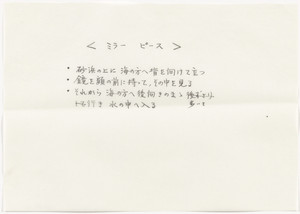 < ミラー ピース >
• 砂浜の上に 海の方へ背を向けて立つ
• 鏡を顔の前に持って、その中を見る
• それから 海の方へ後向きのまゝ
行き 水の中へ入る